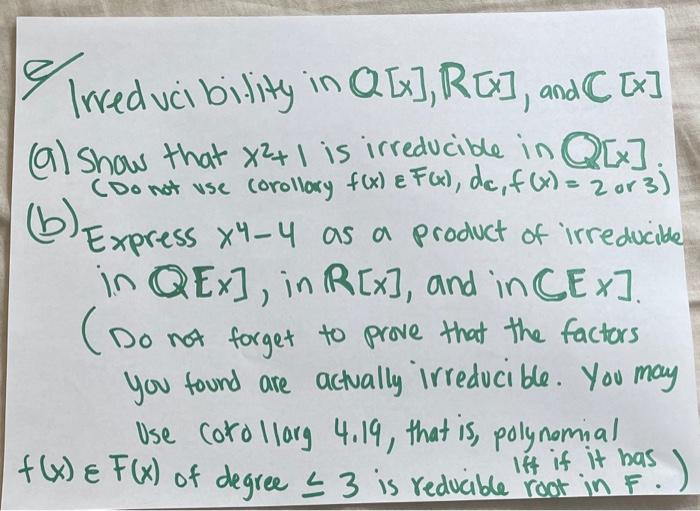 e/ Irreducibility in Q[x], R[x], and C[x]
(a) Show that x²+1 is irreducible in Q[x].
(Do not use corollary f(x) ∈ F(x), de, f(x) = 2 or 3)
(b) Express x⁴-4 as a product of irreducible
in Q[x], in R[x], and in C[x].
(Do not forget to prove that the factors
you found are actually irreducible. You may
Use Corollary 4.19, that is, polynomial
f(x) ∈ F(x) of degree ≤ 3 is reducible iff if it has root in F.)